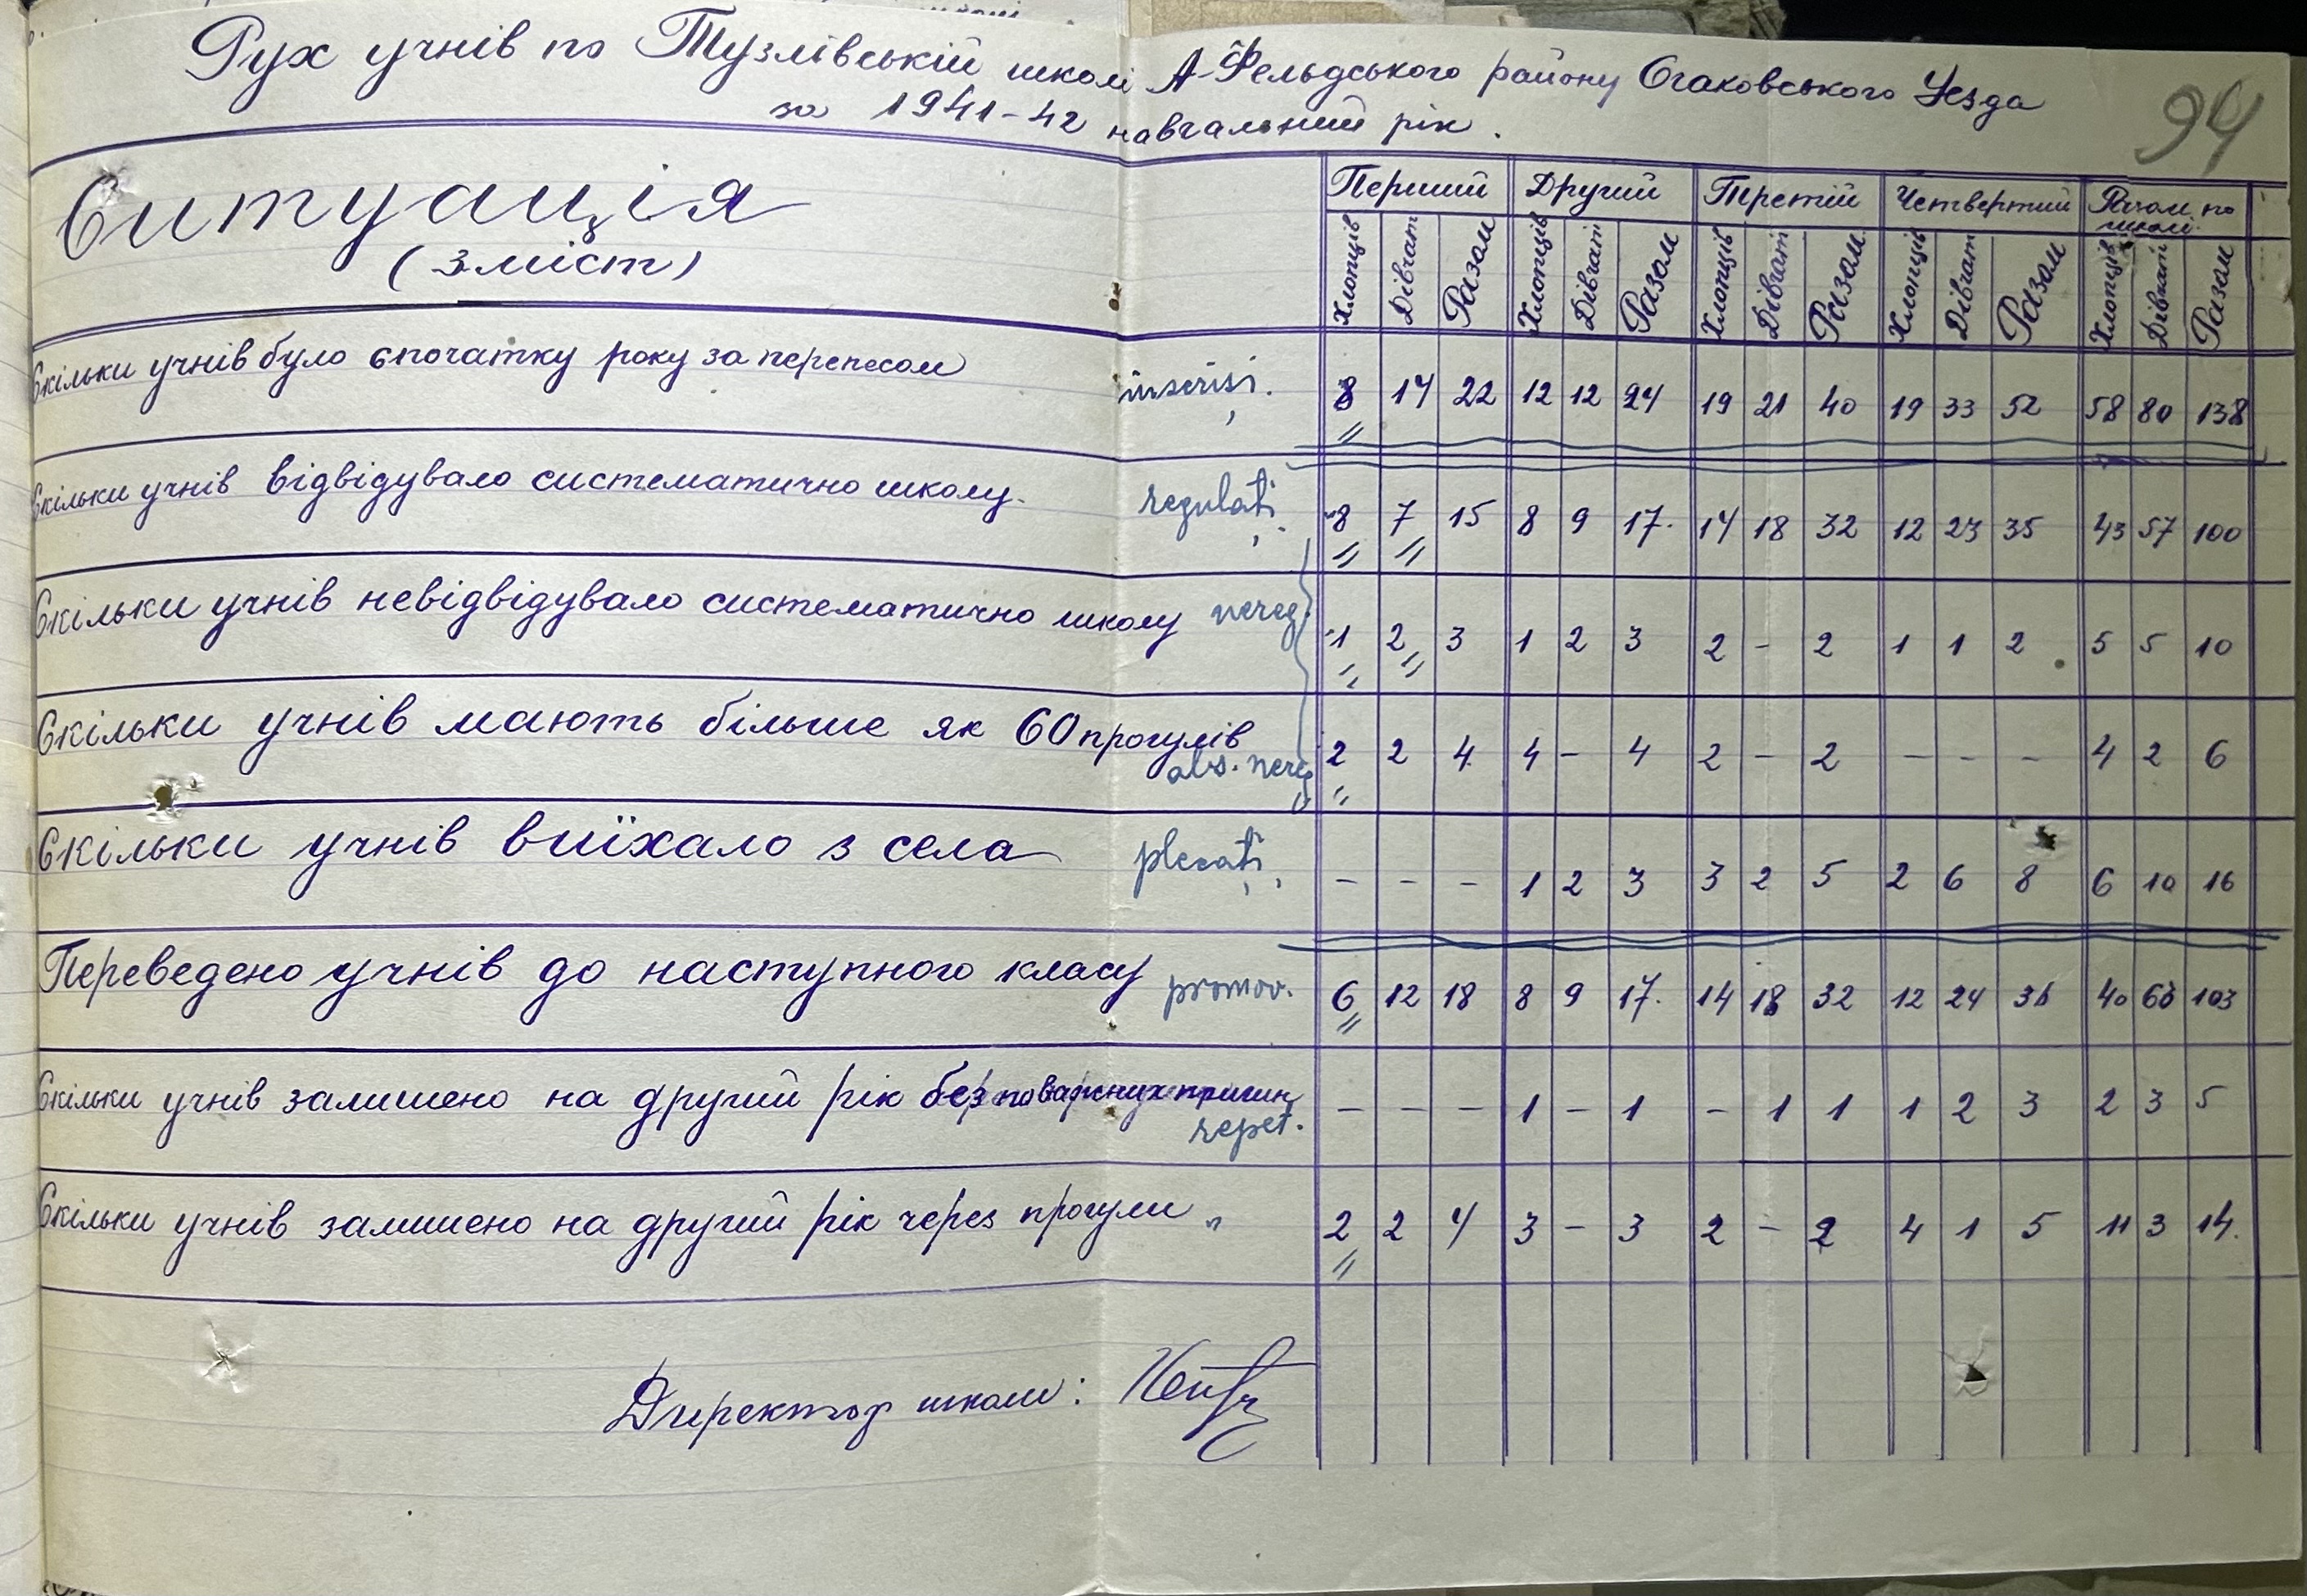 Рух учнів по Тузлівській школі А-Фельдського району Очаковського Уезда
за 1941-42 навчальний рік.
94
Ситуація
(зміст)
Перший Другий Третій Четвертий Разом по школі
Хлопців Дівчат Разом Хлопців Дівчат Разом Хлопців Дівчат Разом Хлопців Дівчат Разом Хлопців Дівчат Разом
Скільки учнів було спочатку року за переписом înscriși. 8 14 22 12 12 24 19 21 40 19 33 52 58 80 138
Скільки учнів відвідувало систематично школу. regulați 8 7 15 8 9 17. 14 18 32 12 23 35 43 57 100
Скільки учнів невідвідувало систематично школу nereg. 1 2 3 1 2 3 2 - 2 1 1 2 5 5 10
Скільки учнів мають більше як 60 прогулів abs. nereg 2 2 4 4 - 4 2 - 2 - - - 4 2 6
Скільки учнів виїхало з села plecați - - - 1 2 3 3 2 5 2 6 8 6 10 16
Переведено учнів до наступного класу promov. 6 12 18 8 9 17. 14 18 32 12 24 36 40 63 103
Скільки учнів залишено на другий рік без поважних причин repet. - - - 1 - 1 - 1 1 1 2 3 2 3 5
Скільки учнів залишено на другий рік через прогули " 2 2 4 3 - 3 2 - 2 4 1 5 11 3 14.
Директор школи: